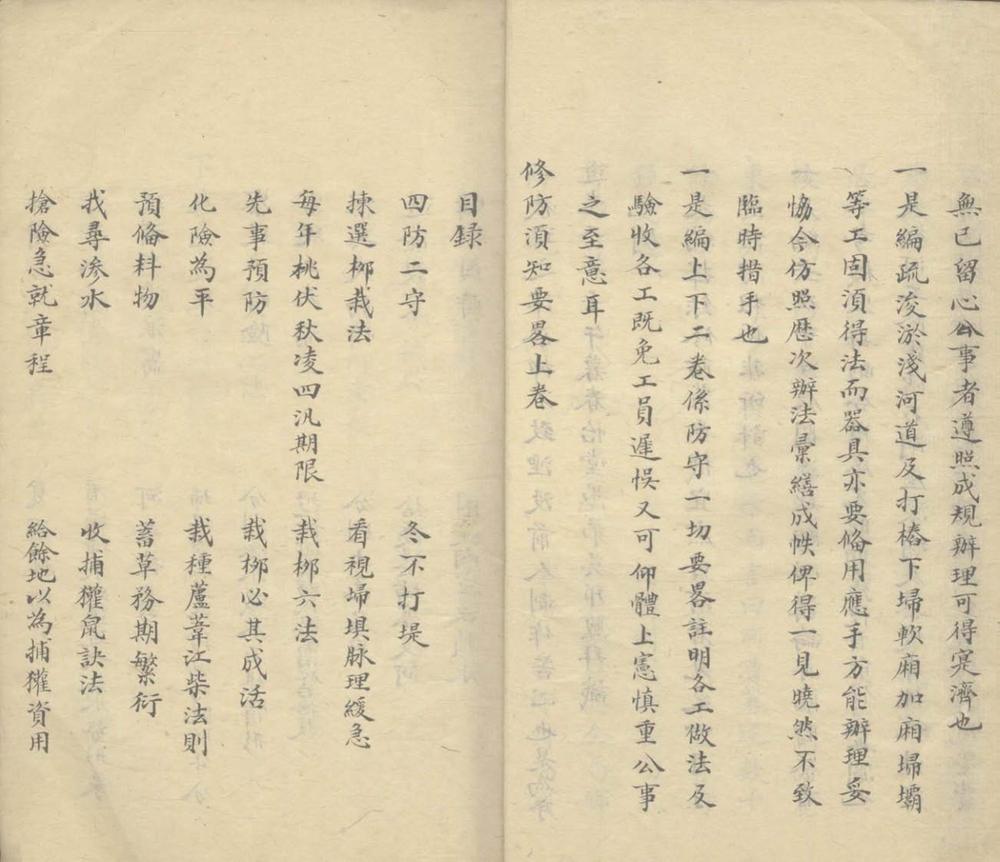 無已留心公事者遵照成規辦理可得寔濟也
一是編疏浚淤淺河道及打樁下埽軟廂加廂埽壩
等工固湏得法而器具亦要俻用應手方能辦理妥
恊合仿照歷次辦法彚繕成帙俾得一見曉然不致
臨時措手也
一是編上下二卷係防守一切要畧註明各工做法及
驗收各工既免工員遲悮又可仰體上憲慎重公事
之至意耳
修防湏知要畧上卷
目錄
四防二守 冬不打堤
揀選柳栽法 看視埽埧脉理緩急
每年桃伏秋凌四汛期限 栽柳六法
先事預防 栽柳必其成活
化險為平 栽種蘆葦江柴法則
預俻料物 蓄草務期繁衍
找尋滲水 收捕獾鼠訣法
搶險急就章程 給餘地以為捕獾資用